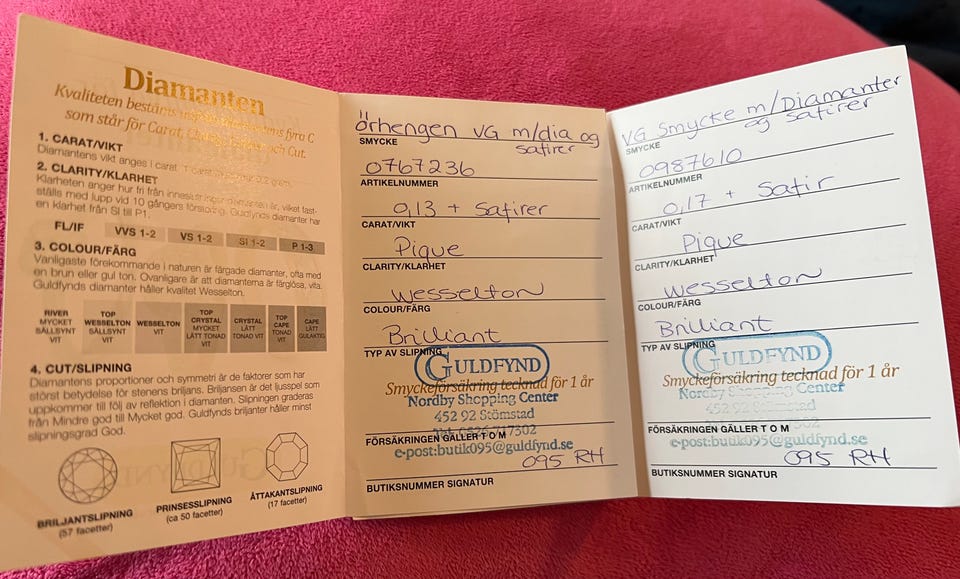 Diamanten
Kvaliteten består fyra C
som står för Carat, och Cut.
1. CARAT/VIKT
Diamantens vikt anges i carat. 1 carat 0,2 gram.
2. CLARITY/KLARHET
Klarheten anger hur fri från är, vilket fast-
ställs med lupp vid 10 gångers förstoring. Guldfynds diamanter har
en klarhet från SI till P1.
FL/IF VVS 1-2 VS 1-2 SI 1-2 P 1-3
3. COLOUR/FÄRG
Vanligaste förekommande i naturen är färgade diamanter, ofta med
en brun eller gul ton. Ovanligare är att diamanterna är färglösa, vita.
Guldfynds diamanter håller kvalitet Wesselton.
RIVER
MYCKET
SÄLLSYNT
VIT
TOP
WESSELTON
SÄLLSYNT
VIT
WESSELTON
VIT
TOP
CRYSTAL
MYCKET
LÄTT TONAD
VIT
CRYSTAL
LÄTT
TONAD
VIT
TOP
CAPE
TONAD
VIT
CAPE
LÄTT
GULAKTIG
4. CUT/SLIPNING
Diamantens proportioner och symmetri är de faktorer som har
störst betydelse för stenens briljans. Briljansen är det ljusspel som
uppkommer till följd av reflektion i diamanten. Slipningen graderas
från Mindre god till Mycket god. Guldfynds briljanter håller minst
slipningsgrad God.
BRILJANTSLIPNING
(57 facetter)
PRINSESSLIPNING
(ca 50 facetter)
ÅTTAKANTSLIPNING
(17 facetter)
örhengen VG m/dia og
safirer
SMYCKE
0767236
ARTIKELNUMMER
0,13 + Safirer
CARAT/VIKT
Pique
CLARITY/KLARHET
Wesselton
COLOUR/FÄRG
Brilliant
TYP AV SLIPNING
GULDFYND
Smyckeförsäkring tecknad för 1 år
Nordby Shopping Center
452 92 Stömstad
FÖRSÄKRINGEN GÄLLER T O M
e-post:butik095@guldfynd.se
095 RH
BUTIKSNUMMER SIGNATUR
VG Smycke m/Diamanter
og safirer
SMYCKE
0987610
ARTIKELNUMMER
0,17 + Safir
CARAT/VIKT
Pique
CLARITY/KLARHET
Wesselton
COLOUR/FÄRG
Brilliant
TYP AV SLIPNING
GULDFYND
Smyckeförsäkring tecknad för 1 år
Nordby Shopping Center
452 92 Stömstad
FÖRSÄKRINGEN GÄLLER T O M
e-post:butik095@guldfynd.se
095 RH
BUTIKSNUMMER SIGNATUR